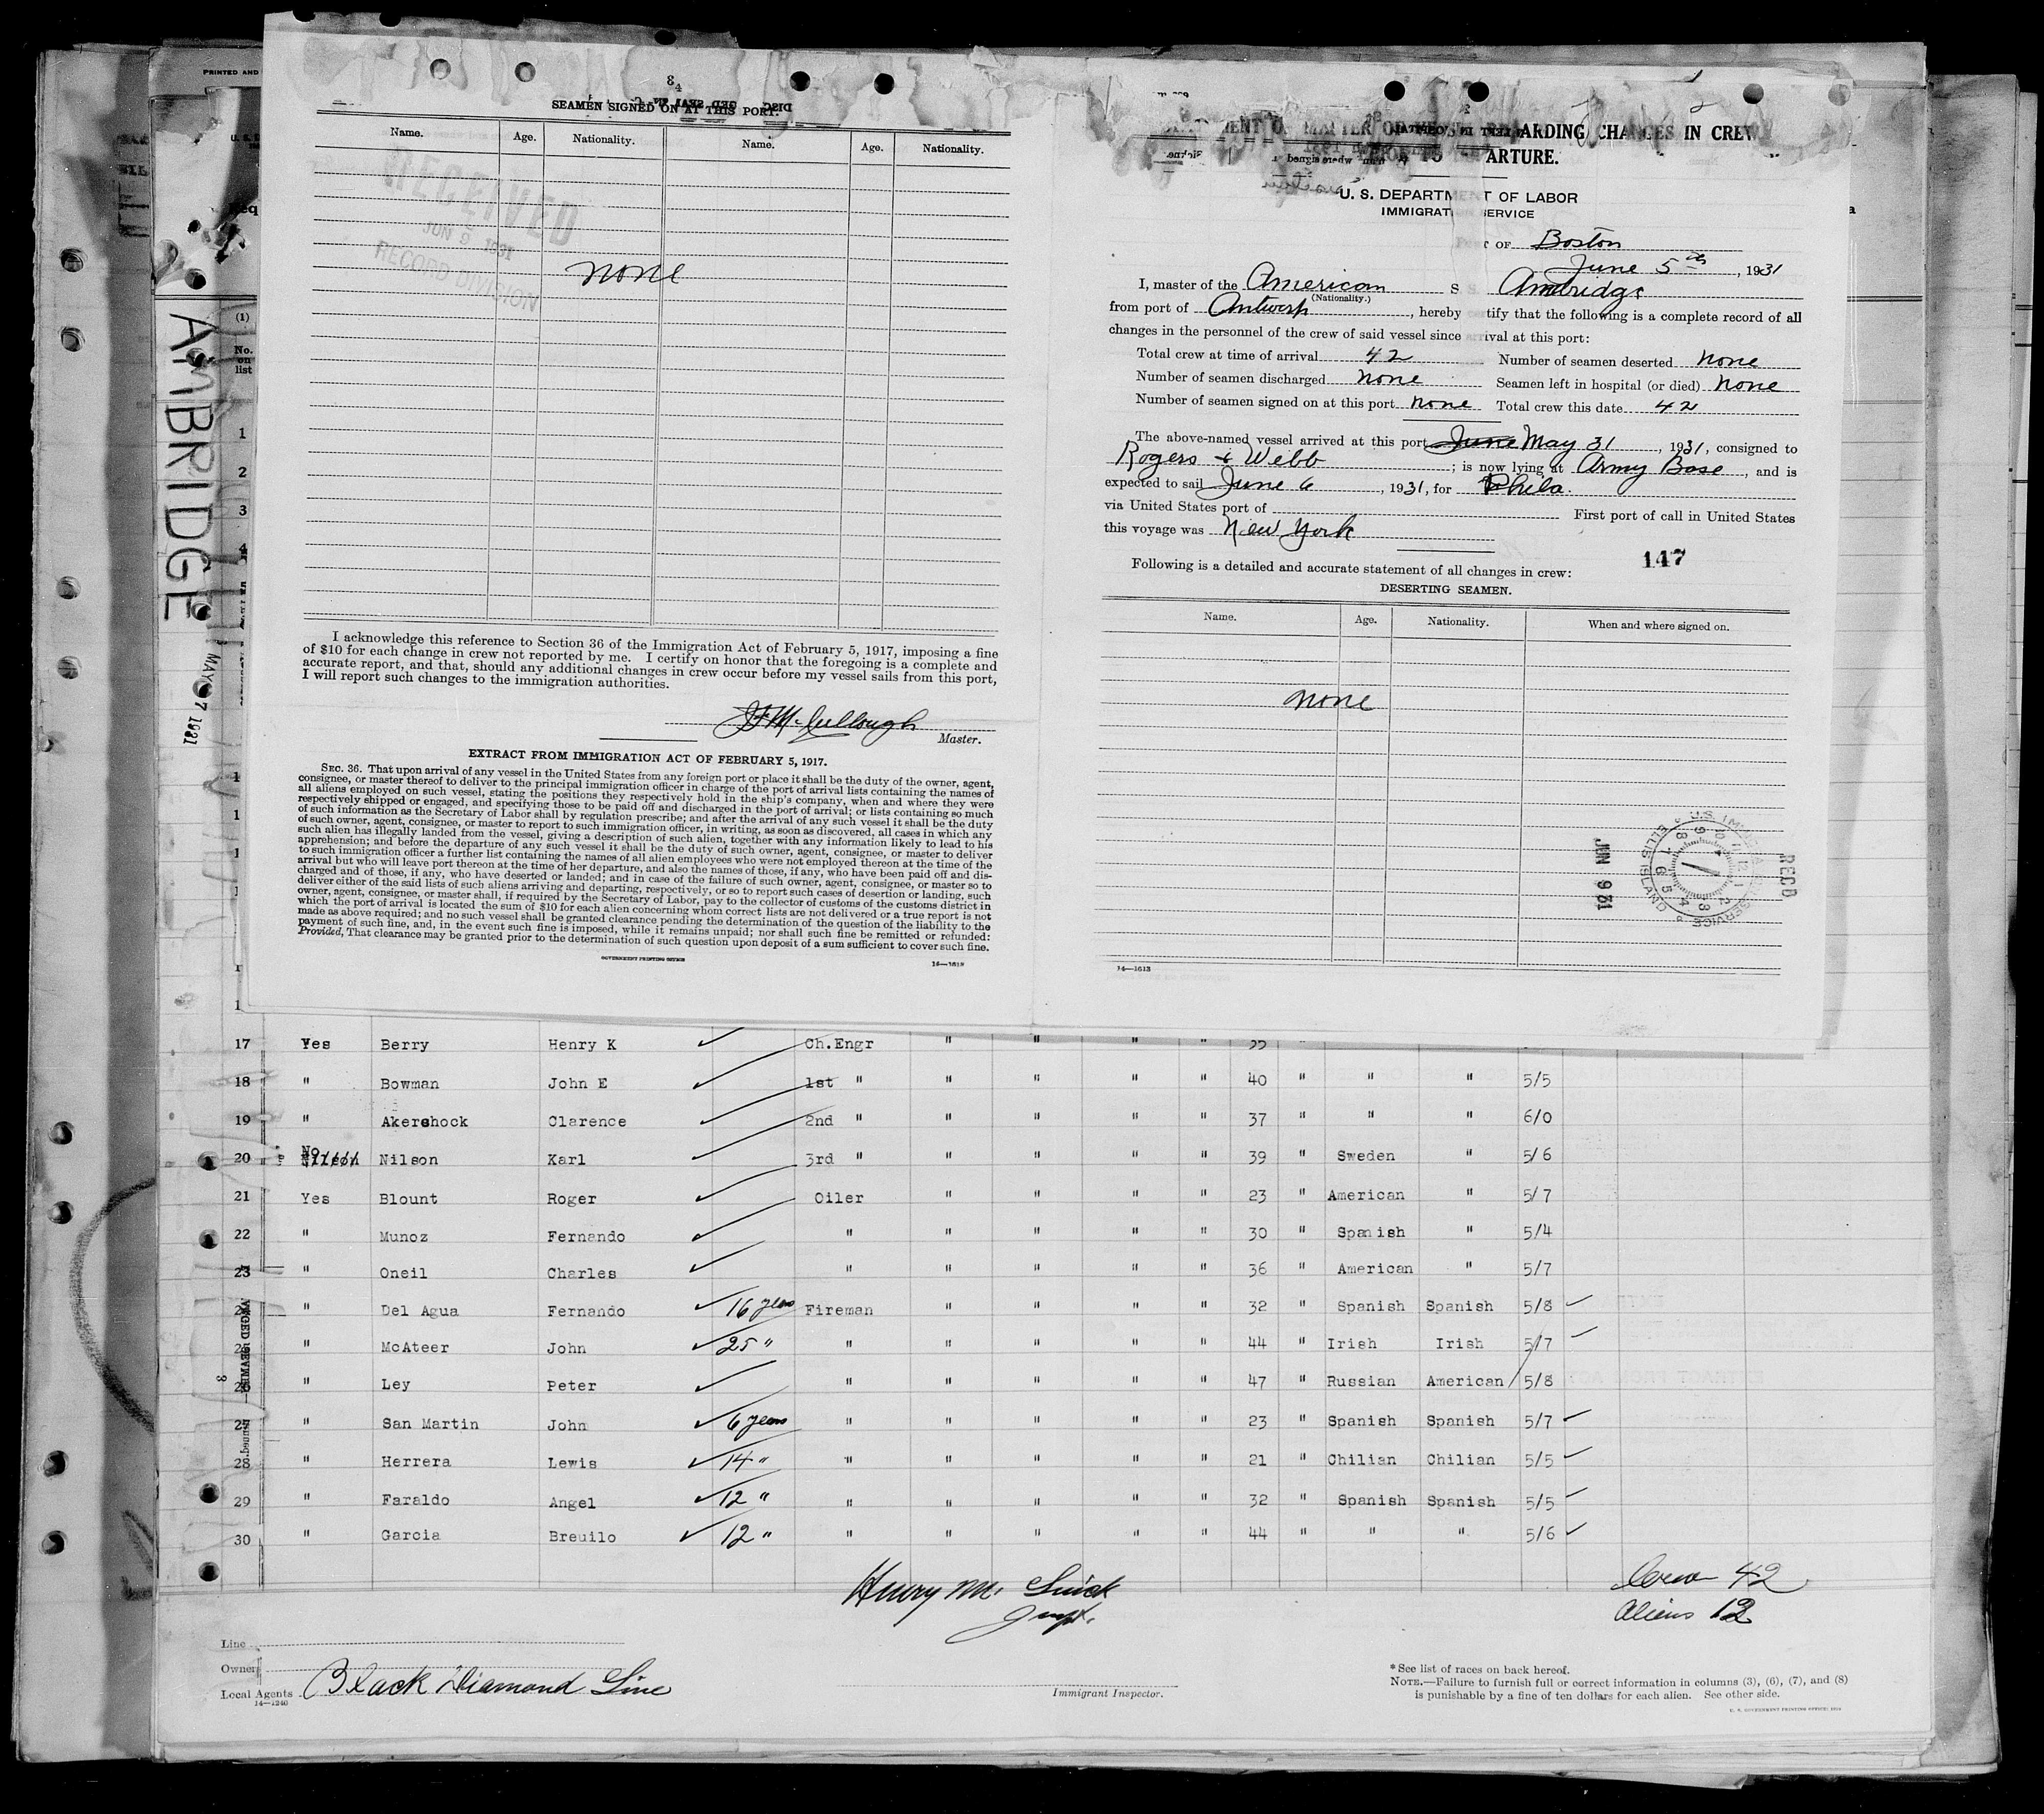 PRINTED AND
AMBRIDGE
(1)
No.
on
list
1
2
3
4
8
4
SEAMEN SIGNED ON AT THIS PORT.
Name. Age. Nationality. Name. Age. Nationality.
RECEIVED
JUN 9 1931
RECORD DIVISION
none
I acknowledge this reference to Section 36 of the Immigration Act of February 5, 1917, imposing a fine
of $10 for each change in crew not reported by me. I certify on honor that the foregoing is a complete and
accurate report, and that, should any additional changes in crew occur before my vessel sails from this port,
I will report such changes to the immigration authorities.
J F McCullough
Master.
EXTRACT FROM IMMIGRATION ACT OF FEBRUARY 5, 1917.
SEC. 36. That upon arrival of any vessel in the United States from any foreign port or place it shall be the duty of the owner, agent,
consignee, or master thereof to deliver to the principal immigration officer in charge of the port of arrival lists containing the names of
all aliens employed on such vessel, stating the positions they respectively hold in the ship's company, when and where they were
respectively shipped or engaged, and specifying those to be paid off and discharged in the port of arrival; or lists containing so much
of such information as the Secretary of Labor shall by regulation prescribe; and after the arrival of any such vessel it shall be the duty
of such owner, agent, consignee, or master to report to such immigration officer, in writing, as soon as discovered, all cases in which any
such alien has illegally landed from the vessel, giving a description of such alien, together with any information likely to lead to his
apprehension; and before the departure of any such vessel it shall be the duty of such owner, agent, consignee, or master to deliver
to such immigration officer a further list containing the names of all alien employees who were not employed thereon at the time of the
arrival but who will leave port thereon at the time of her departure, and also the names of those, if any, who have been paid off and dis-
charged and of those, if any, who have deserted or landed; and in case of the failure of such owner, agent, consignee, or master so to
deliver either of the said lists of such aliens arriving and departing, respectively, or so to report such cases of desertion or landing, such
owner, agent, consignee, or master shall, if required by the Secretary of Labor, pay to the collector of customs of the customs district in
which the port of arrival is located the sum of $10 for each alien concerning whom correct lists are not delivered or a true report is not
made as above required; and no such vessel shall be granted clearance pending the determination of the question of the liability to the
payment of such fine, and, in the event such fine is imposed, while it remains unpaid; nor shall such fine be remitted or refunded:
Provided, That clearance may be granted prior to the determination of such question upon deposit of a sum sufficient to cover such fine.
GOVERNMENT PRINTING OFFICE
ARDING CHANGES IN CREW
ARTURE.
U. S. DEPARTMENT OF LABOR
IMMIGRATION SERVICE
PORT OF Boston
June 5th, 1931
I, master of the American S. S. Ambridge
(Nationality.)
from port of Antwerp, hereby certify that the following is a complete record of all
changes in the personnel of the crew of said vessel since arrival at this port:
Total crew at time of arrival 42 Number of seamen deserted none
Number of seamen discharged none Seamen left in hospital (or died) none
Number of seamen signed on at this port none Total crew this date 42
The above-named vessel arrived at this port June May 31, 1931, consigned to
Rogers & Webb; is now lying at Army Base, and is
expected to sail June 6, 1931, for Phila.
via United States port of First port of call in United States
this voyage was New York
147
Following is a detailed and accurate statement of all changes in crew:
DESERTING SEAMEN.
Name. Age. Nationality. When and where signed on.
none
REC'D
JUN 9 31
14—1613
17 Yes Berry Henry K Ch.Engr " " " "
18 " Bowman John E 1st " " " " " 40 " " " 5/5
19 " Akershock Clarence 2nd " " " " " 37 " " " 6/0
20 No Nilson Karl 3rd " " " " " 39 " Sweden " 5/6
21 Yes Blount Roger Oiler " " " " 23 " American " 5/7
22 " Munoz Fernando " " " " " 30 " Spanish " 5/4
23 " Oneil Charles " " " " " 36 " American " 5/7
24 " Del Agua Fernando 16 years Fireman " " " " 32 " Spanish Spanish 5/8
25 " McAteer John 25 " " " " " " 44 " Irish Irish 5/7
26 " Ley Peter " " " " " 47 " Russian American 5/8
27 " San Martin John 6 years " " " " " 23 " Spanish Spanish 5/7
28 " Herrera Lewis 14 " " " " " " 21 " Chilian Chilian 5/5
29 " Faraldo Angel 12 " " " " " " 32 " Spanish Spanish 5/5
30 " Garcia Breuilo 12 " " " " " " 44 " " " 5/6
Crew 42
Aliens 12
Line
Owner
Local Agents Black Diamond Line
14—1240
Immigrant Inspector.
* See list of races on back hereof.
NOTE.—Failure to furnish full or correct information in columns (3), (6), (7), and (8)
is punishable by a fine of ten dollars for each alien. See other side.